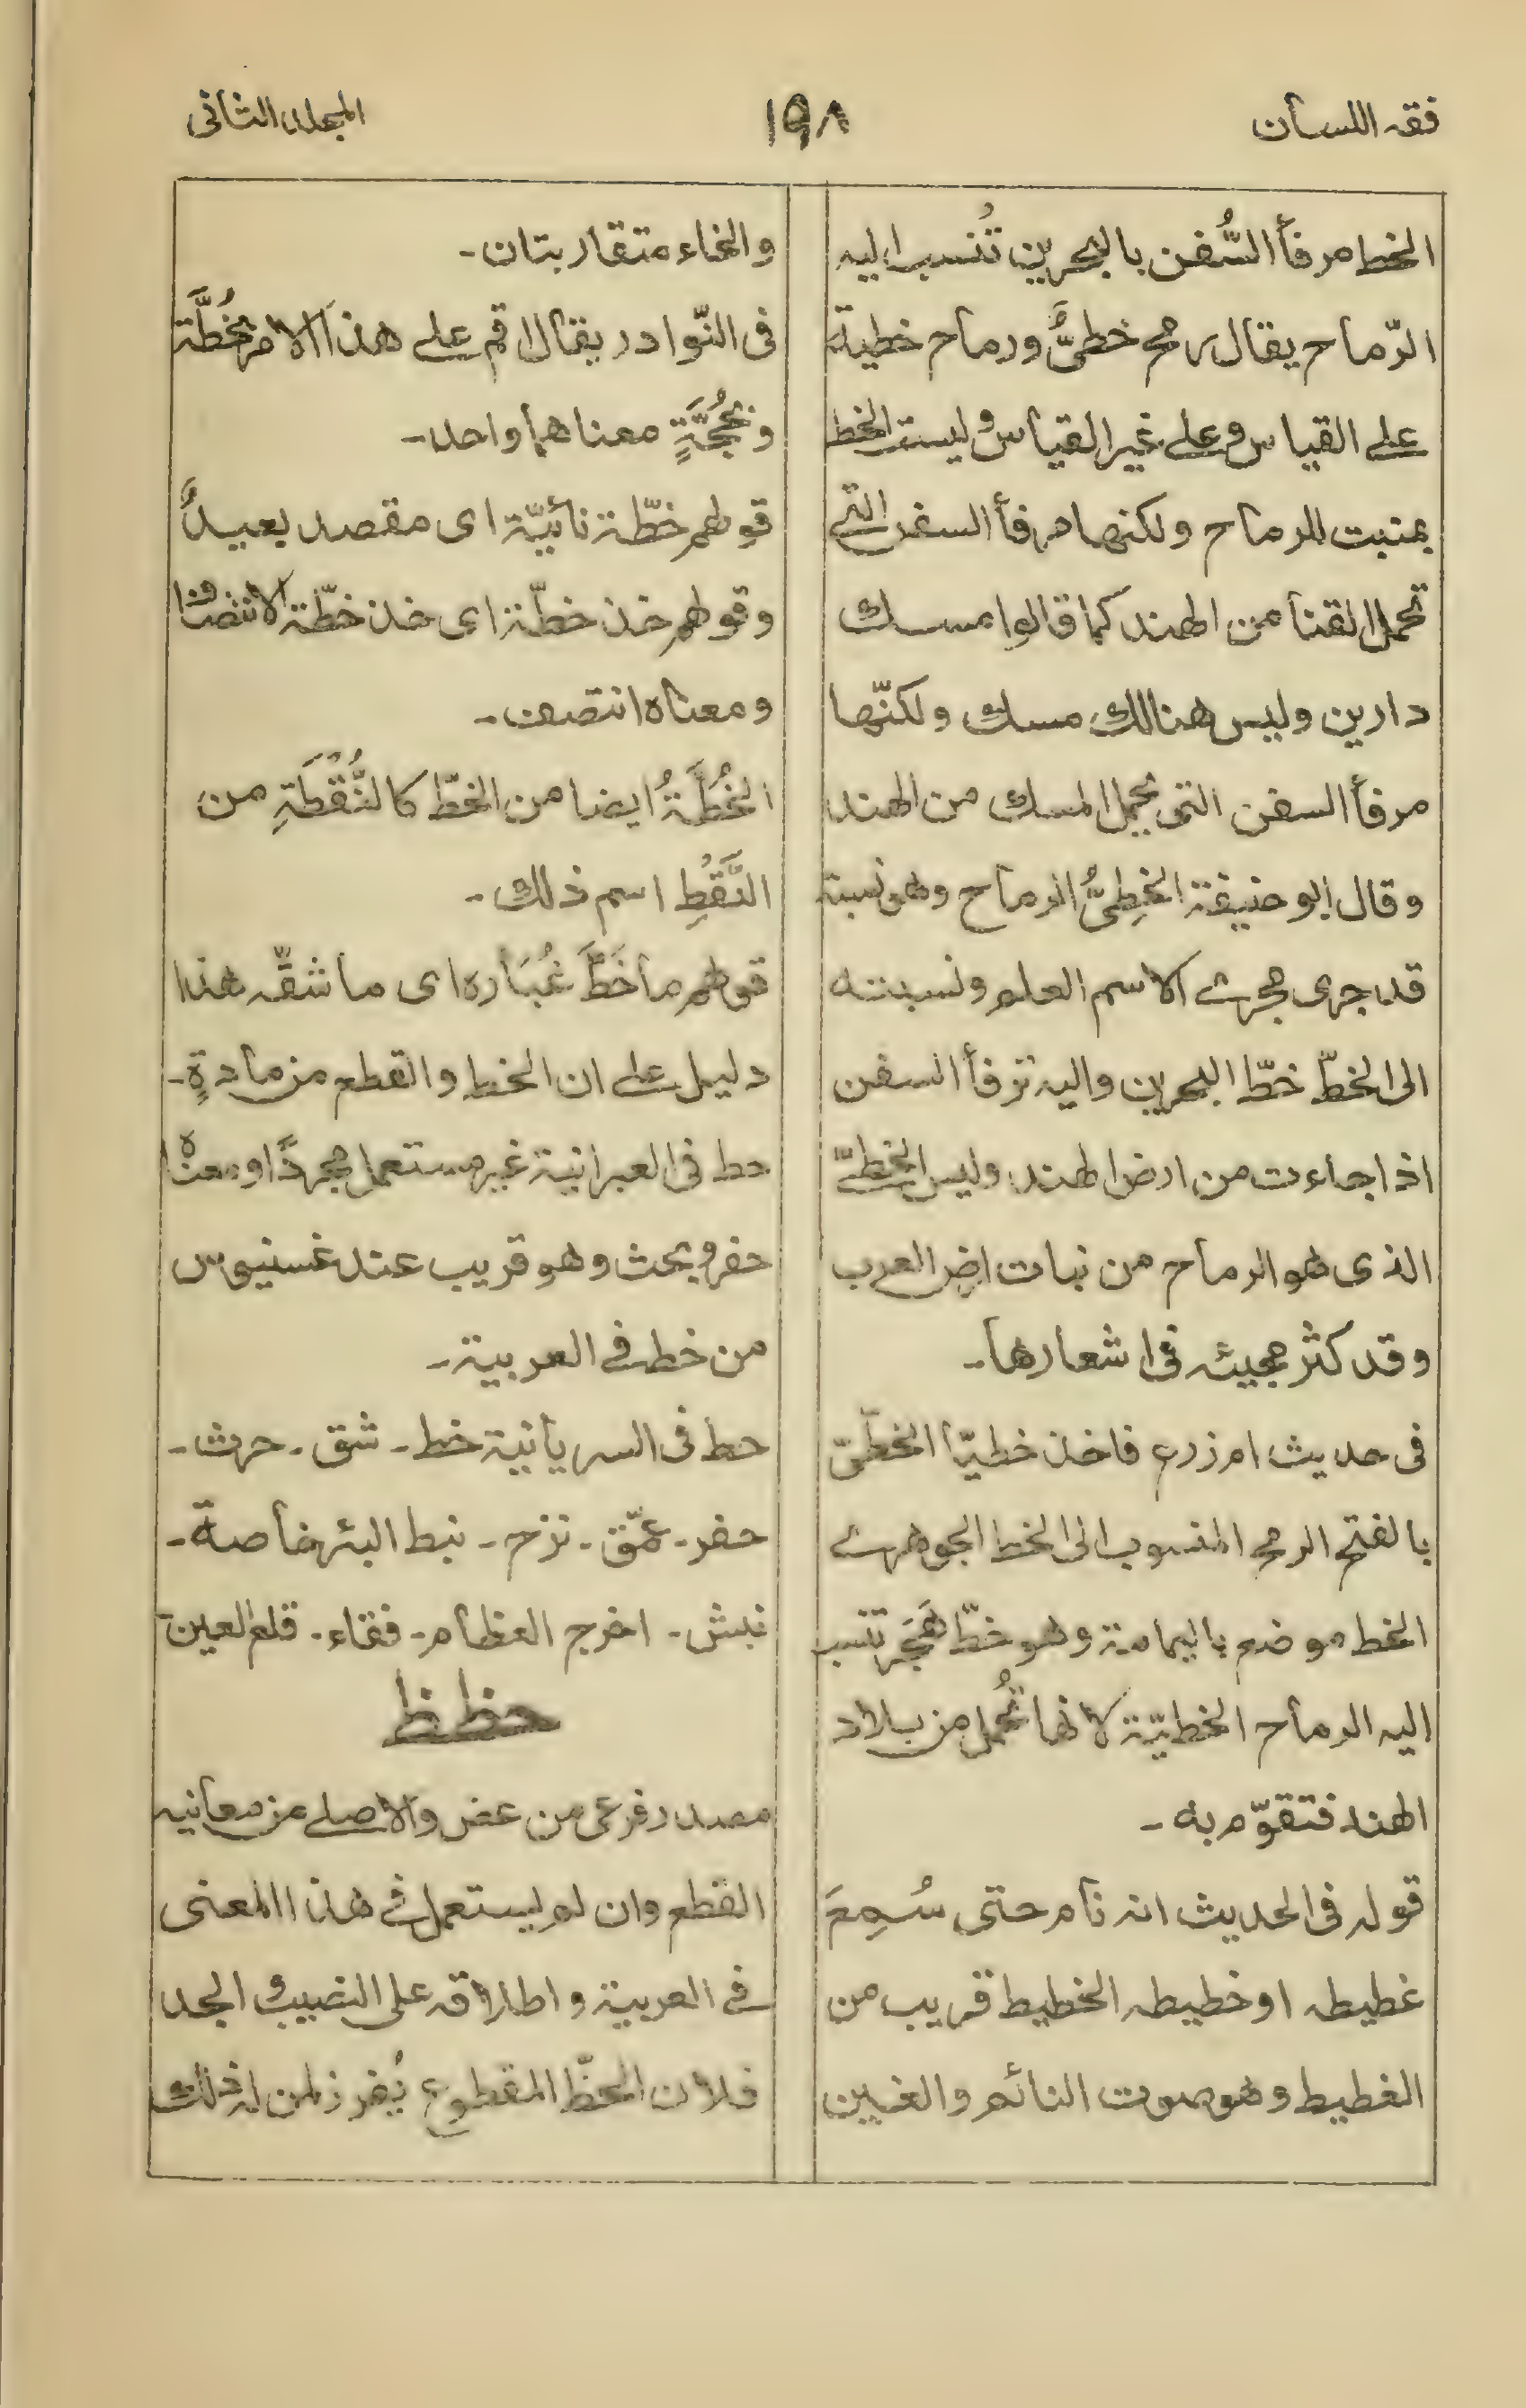 فقه اللسان
١٩٨
المجلد الثانى
الخط مرفأ السُّفن بالبحرين تُنسب اليه
الرّماح يقال رمح خطىٌّ ورماح خطية
على القياس وعلى غير القياس وليست الخط
بمنبت للرماح ولكنها مرفأ السفن التى
تحمل القنا من الهند كما قالوا مسك
دارين وليس هنالك مسك ولكنّها
مرفأ السفن التى تحمل المسك من الهند
وقال ابو حنيفة الخِطىُّ الرماح وهو نسبة
قد جرى مجرى الاسم العلم ونسبته
الى الخطّ خطّ البحرين واليه ترفأ السفن
اذا جاءت من ارض الهند وليس الخطىّ
الذى هو الرماح من نبات ارض العرب
وقد كثر مجيئه فى اشعارها۔
فى حديث ام زرع فاخذ خطيّا الخطّىّ
بالفتح الرمح المنسوب الى الخط الجوهرى
الخط موضع باليمامة وهو خطّ هَجَر تنسب
اليه الرماح الخطيّة لانها تُحمل من بلاد
الهند فتقوّم به۔
قوله فى الحديث انه نام حتى سُمِعَ
غطيطه او خطيطه الخطيط قريب من
الغطيط وهو صوت النائم والغين
والخاء متقاربتان۔
فى النّوادر يقال اقم على هذا الامر بخُطَّة
وبحُجَّةٍ معناهما واحد۔
قولهم خطّة نائيّة اى مقصد بعيدٌ
وقولهم خذ خطّة اى خذ خطّة الانتصاف
ومعناه انتصف۔
الخُطَّةُ ايضا من الخطّ كالنُّقْطَةِ من
النَّقْطِ اسم ذلك۔
قولهم ما خَطَّ غُبَاره اى ما شقّه هذا
دليل على ان الخط والقطع من مادةٍ۔
حط فى العبرانية غير مستعمل مجردًا ومعناه
حفر وبحث وهو قريب عند غسنيوس
من خط فى العربية۔
حط فى السريانية خط۔ شق۔ حرث۔
حفر۔ عمّق۔ نزح۔ نبط البئر خاصة۔
نبش۔ اخرج العظام۔ فقاء۔ قلع العين۔
حظظ
مصدر فرعى من عض والاصلى من معانيه
القطع وان لم يستعمل فى هذا المعنى
فى العربية واطلاقه على النصيب والجد
فلان الحظّ المقطوع يُفرز لمن له ذلك